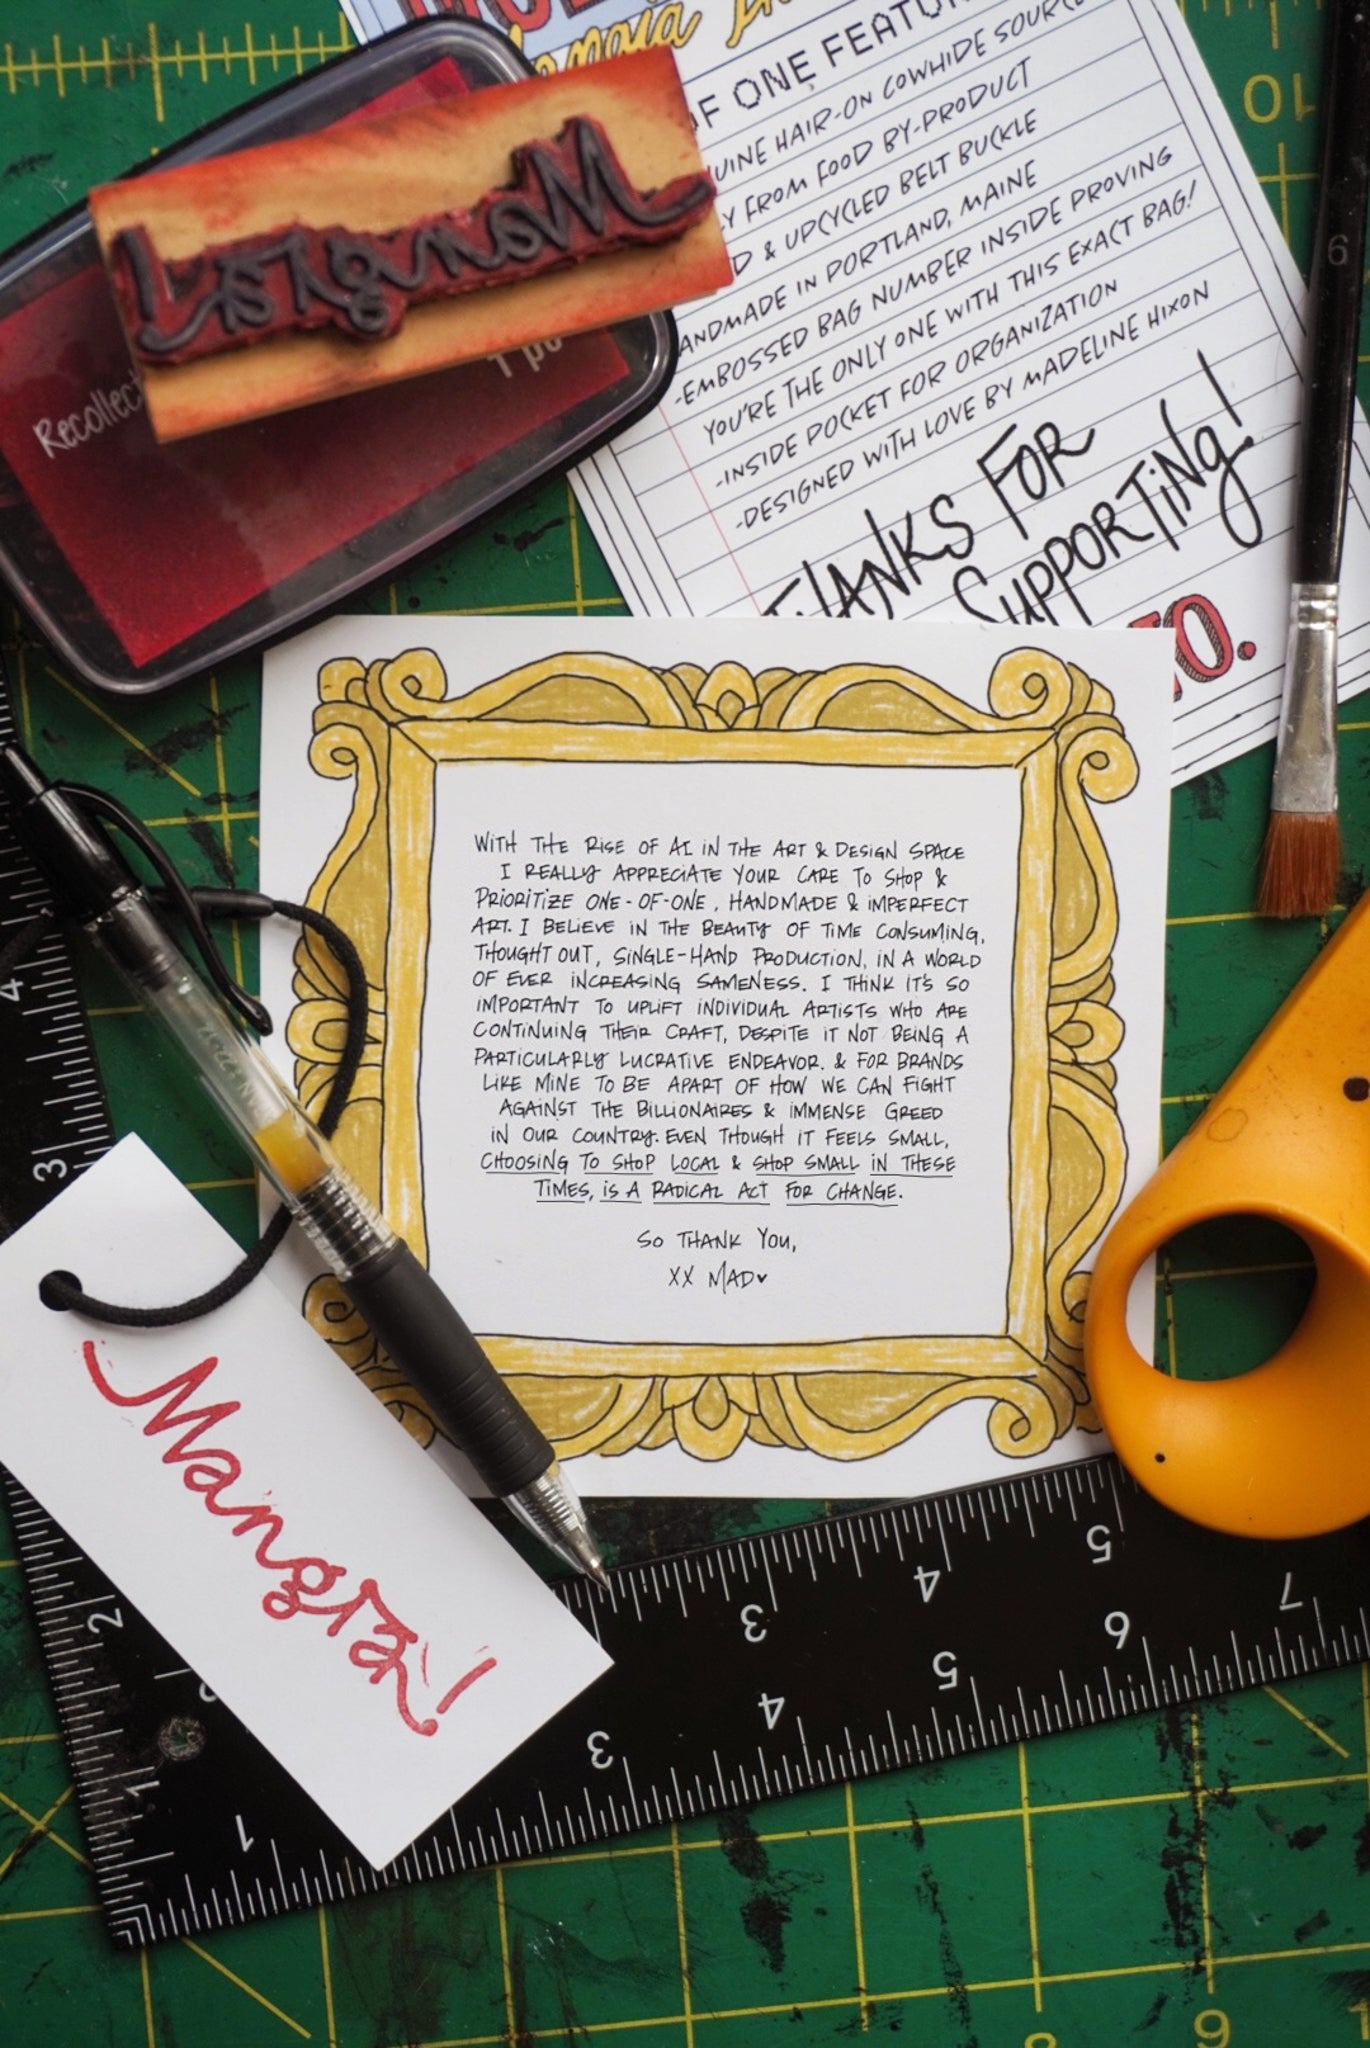 OF ONE FEATUR
HAIR-ON COWHIDE SOURC
FROM FOOD BY-PRODUCT
& UPCYCLED BELT BUCKLE
ANDMADE IN PORTLAND, MAINE
-EMBOSSED BAG NUMBER INSIDE PROVING
YOU'RE THE ONLY ONE WITH THIS EXACT BAG!
-INSIDE POCKET FOR ORGANIZATION
-DESIGNED WITH LOVE BY MADELINE HIXON
THANKS FOR
SUPPORTING!
Recollect
WITH THE RISE OF AI IN THE ART & DESIGN SPACE
I REALLY APPRECIATE YOUR CARE TO SHOP &
PRIORITIZE ONE-OF-ONE, HANDMADE & IMPERFECT
ART. I BELIEVE IN THE BEAUTY OF TIME CONSUMING,
THOUGHT OUT, SINGLE-HAND PRODUCTION, IN A WORLD
OF EVER INCREASING SAMENESS. I THINK IT'S SO
IMPORTANT TO UPLIFT INDIVIDUAL ARTISTS WHO ARE
CONTINUING THEIR CRAFT, DESPITE IT NOT BEING A
PARTICULARLY LUCRATIVE ENDEAVOR. & FOR BRANDS
LIKE MINE TO BE APART OF HOW WE CAN FIGHT
AGAINST THE BILLIONAIRES & IMMENSE GREED
IN OUR COUNTRY. EVEN THOUGH IT FEELS SMALL,
CHOOSING TO SHOP LOCAL & SHOP SMALL IN THESE
TIMES, IS A RADICAL ACT FOR CHANGE.
SO THANK YOU,
XX MAD♥
10
6
4
3
2
1
1
3
4
5
3
4
5
6
7
8
9